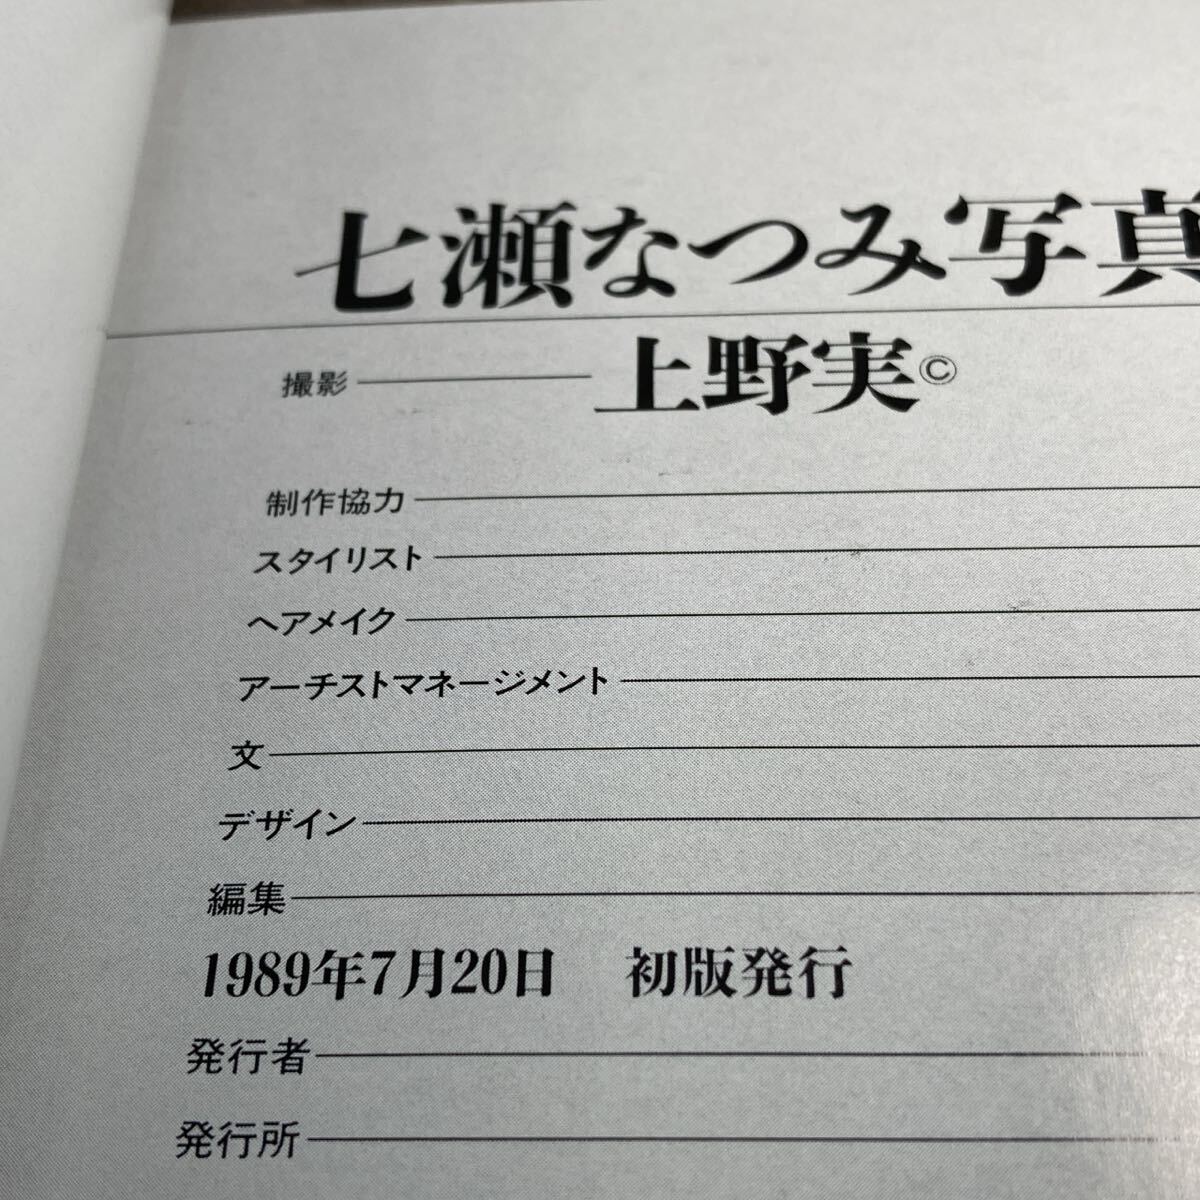 七瀬なつみ写真
撮影 上野実©
制作協力
スタイリスト
ヘアメイク
アーチストマネージメント
文
デザイン
編集
1989年7月20日 初版発行
発行者
発行所